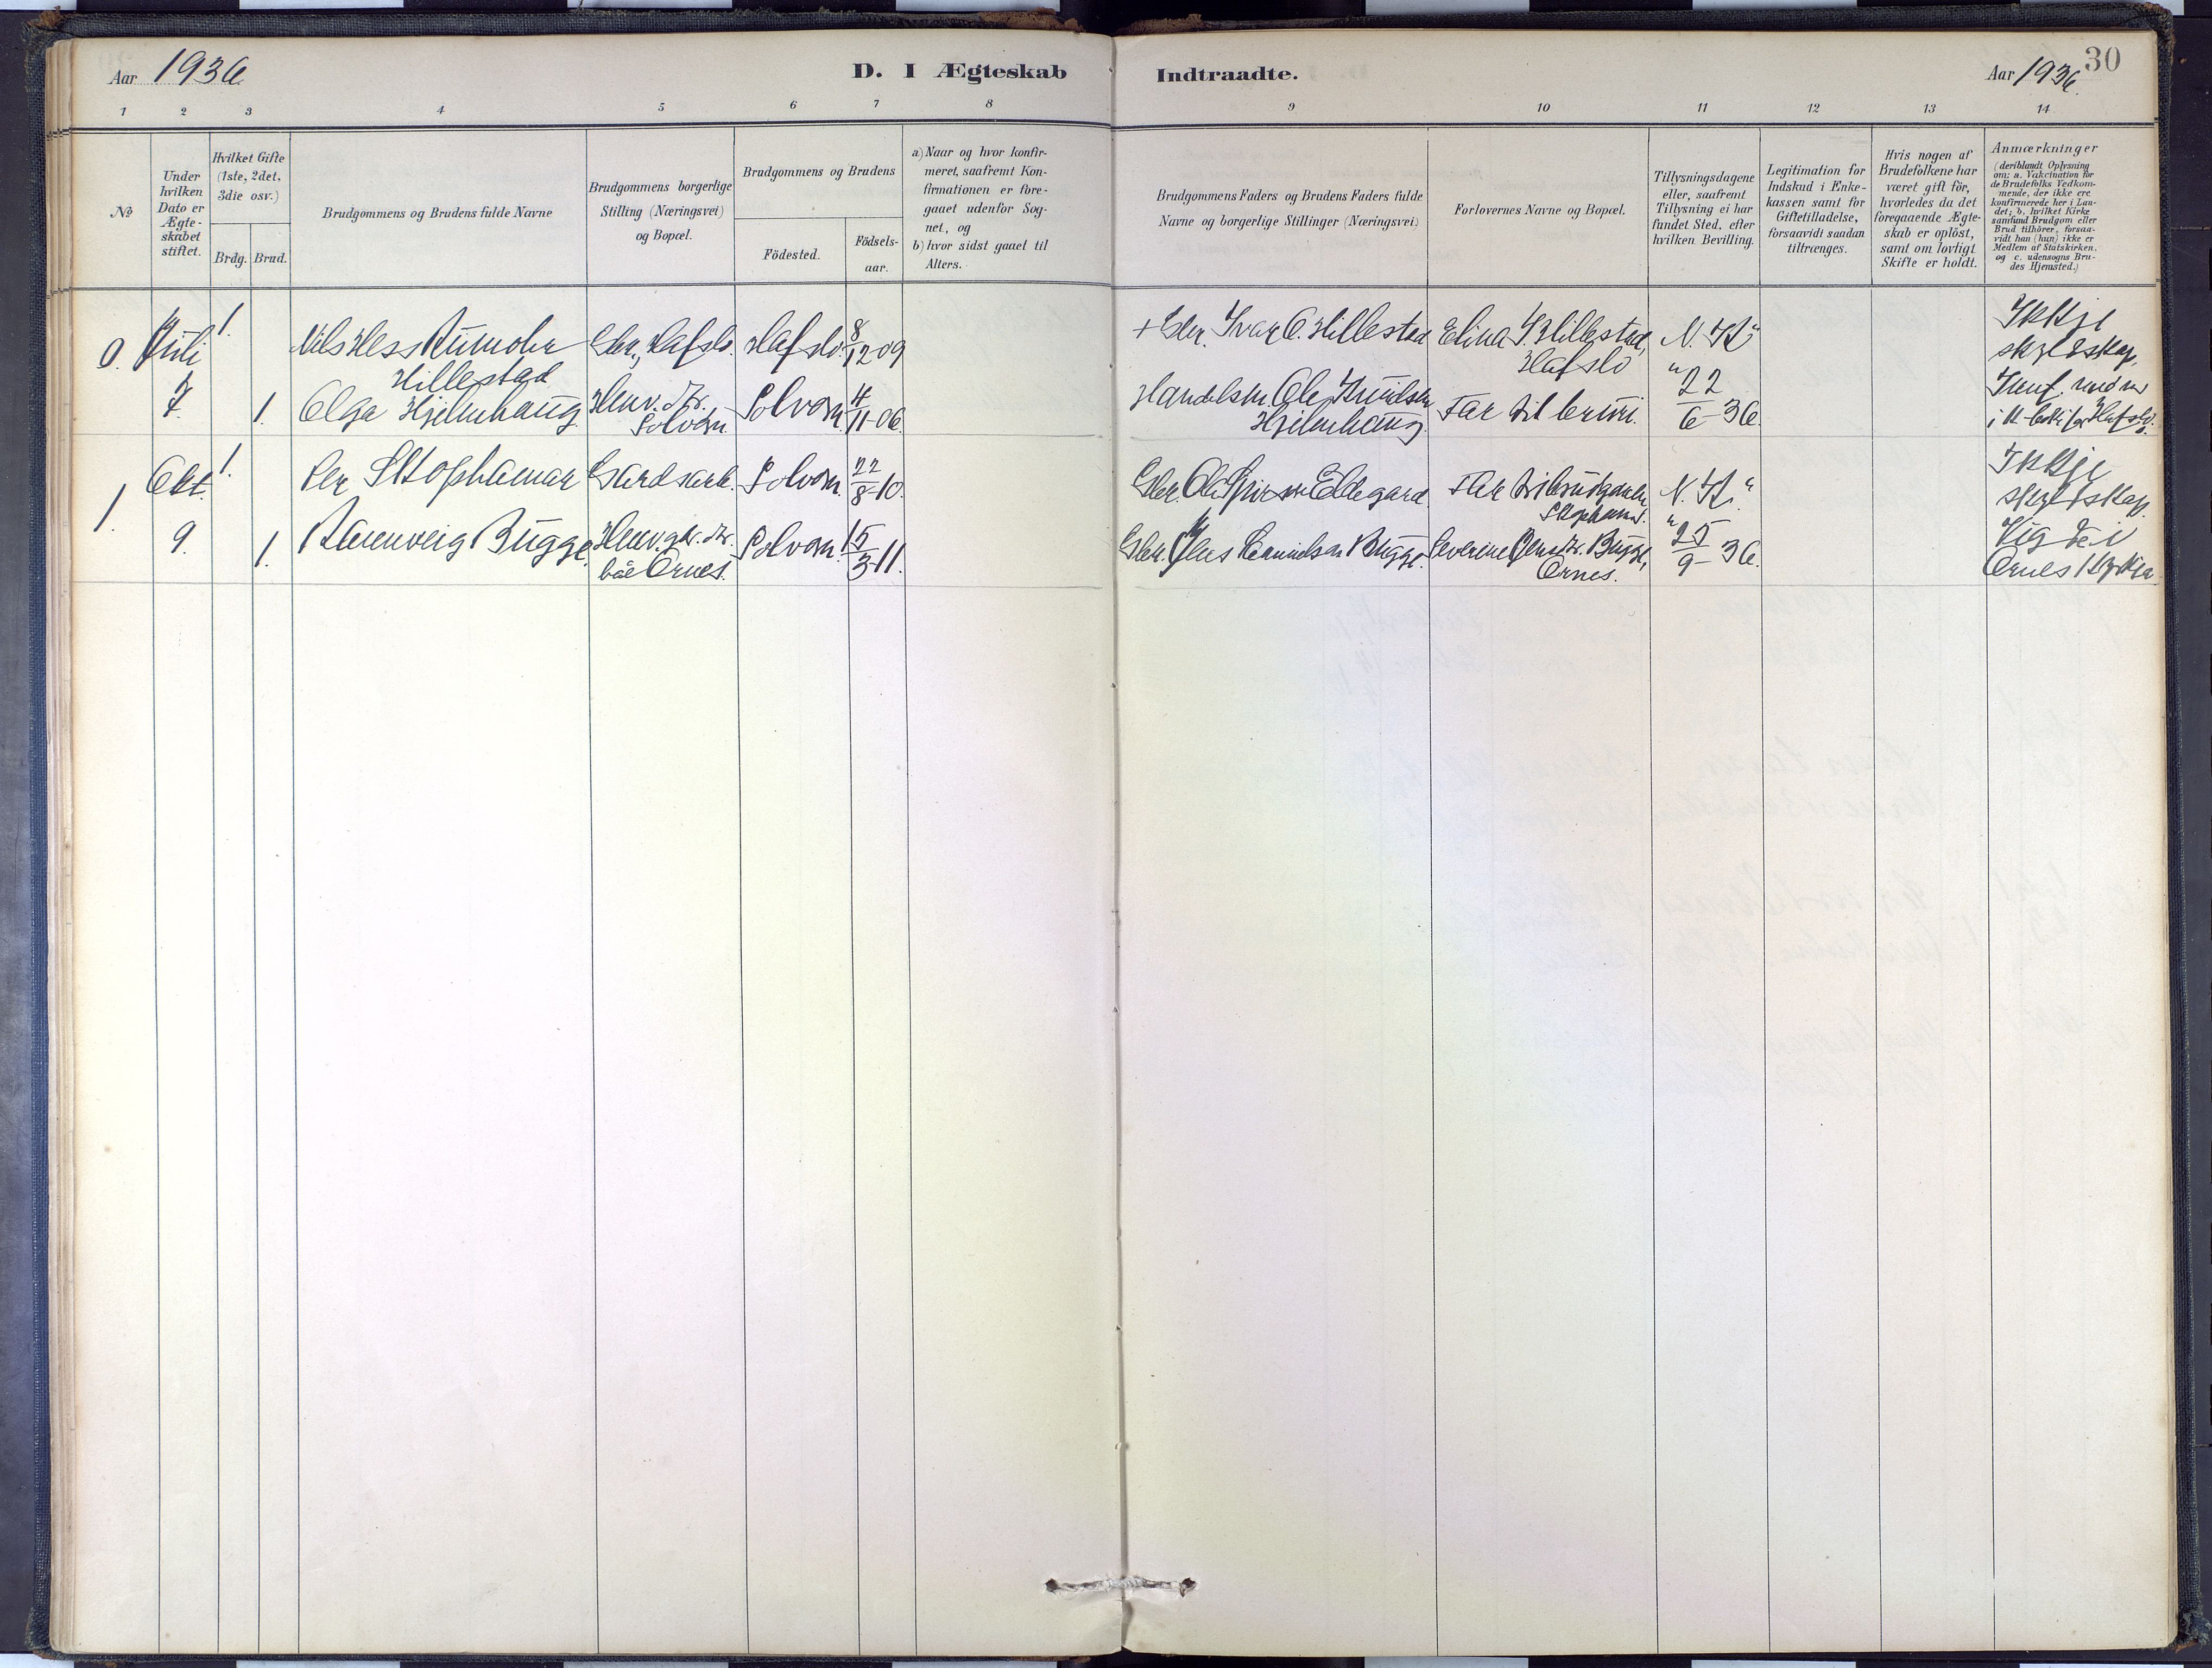 Aar 1936.
D. I Ægteskab
1 2 3 4 5 6 7 8
No
Under
hvilken
Dato er
Ægte-
skabet
stiftet.
Hvilket Gifte
(1ste, 2det,
3die osv.)
Brdg. Brud.
Brudgommens og Brudens fulde Navne
Brudgommens borgerlige
Stilling (Næringsvei)
og Bopæl.
Brudgommens og Brudens
Födested.
Födsels-
aar.
a) Naar og hvor konfir-
meret, saafremt Kon-
firmationen er fore-
gaaet udenfor Sog-
net, og
b) hvor sidst gaaet til
Alters.
0. Juli 1. Nils Hess Rumohr Gbr., Hafslo. Hafslo. 8/12-09
Hillestad
7. 1. Olga Hjelmhaug Solvorn. 4/11-06.
Solvorn
1. Okt. 1. Per Gardsarb. Solvorn. 22/8-10.
9. 1. Bugge. Solvorn. 15/3-11.
Ornes.
Indtraadte.
Aar 1936.
30
9 10 11 12 13 14
Brudgommens Faders og Brudens Faders fulde
Navne og borgerlige Stillinger (Næringsvei)
Forlovernes Navne og Bopæl.
Tillysningsdagene
eller, saafremt
Tillysning ei har
fundet Sted, efter
hvilken Bevilling.
Legitimation for
Indskud i Enke-
kassen samt for
Giftetilladelse,
forsaavidt saadan
tiltrænges.
Hvis nogen af
Brudefolkene har
været gift för,
hvorledes da det
foregaaende Ægte-
skab er oplöst,
samt om lovligt
Skifte er holdt.
Anmærkninger
(deriblandt Oplysning
om: a. Vakcination for
de Brudefolks Vedkom-
mende, der ikke ere
konfirmerede her i Lan-
det; b. hvilket Kirke
samfund Brudgom eller
Brud tilhörer, forsaa-
vidt han (hun) ikke er
Medlem af Statskirken,
og c. udensogns Bru-
des Hjemsted.)
+ Gbr. Ivar O. Hillestad Elina I. Hillestad, N. K. Ikkje
Hafslo skyldskap.
Handelsm. Ole Knudsen Far til bruri. 22/6-36.
Hjelmhaug. i k-boki for Hafslo.
Gbr. Eldegard. Far til brudgomen N. K. Ikkje
skyldskap.
Gbr. Jens Bugge. Severine Bugge, 25/9-36. Vigde i
Ornes. Ornes kyrkja.